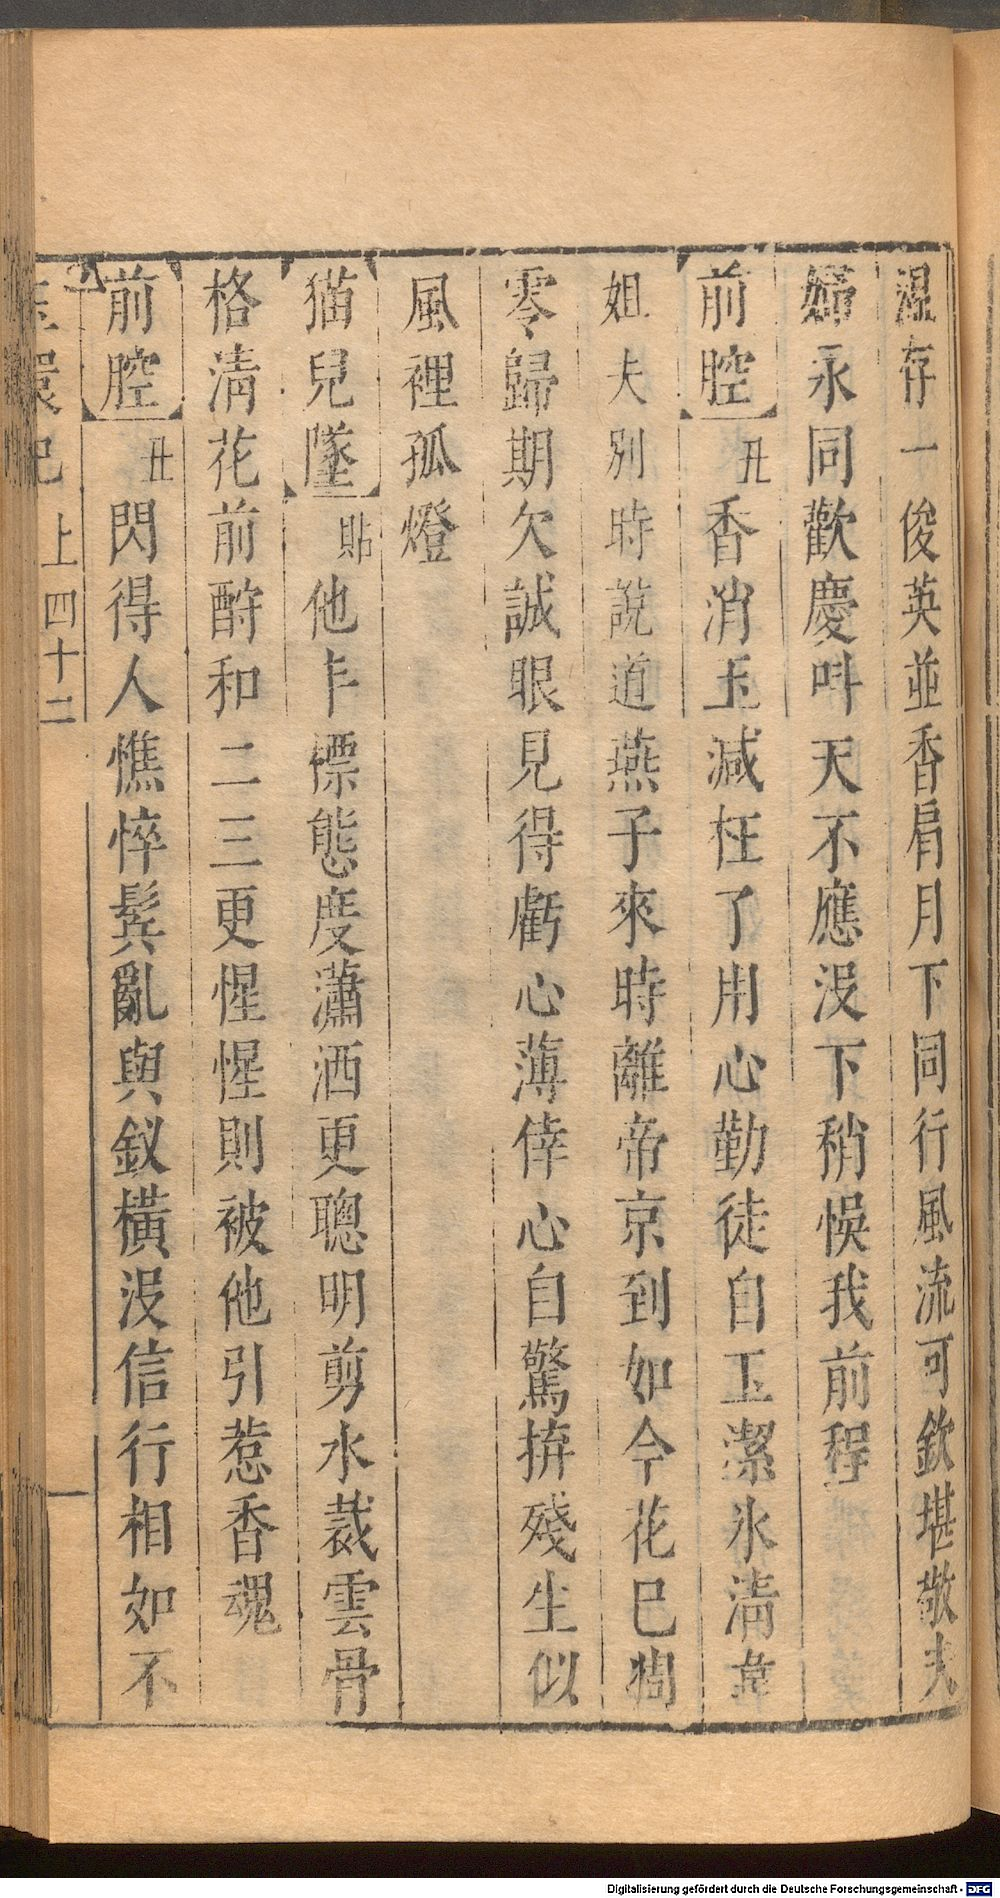 溫存一俊英並香肩月下同行風流可欽堪敬夫
婦永同歡慶呌天不應沒下稍悞我前程
前腔 丑 香消玉減枉了用心勤徒自玉潔氷淸韋
姐夫別時說道燕子來時離帝京到如今花已凋
零歸期欠誠眼見得虧心薄倖心自驚拚殘生似
風裡孤燈
猫兒墜 貼 他乍慓態度瀟洒更聰明剪水裁雲骨
格淸花前酧和二三更惺惺則被他引惹香魂
前腔 丑 閃得人憔悴鬂亂與釵橫沒信行相如不
玉環記 上 四十二
Digitalisierung gefördert durch die Deutsche Forschungsgemeinschaft - DFG